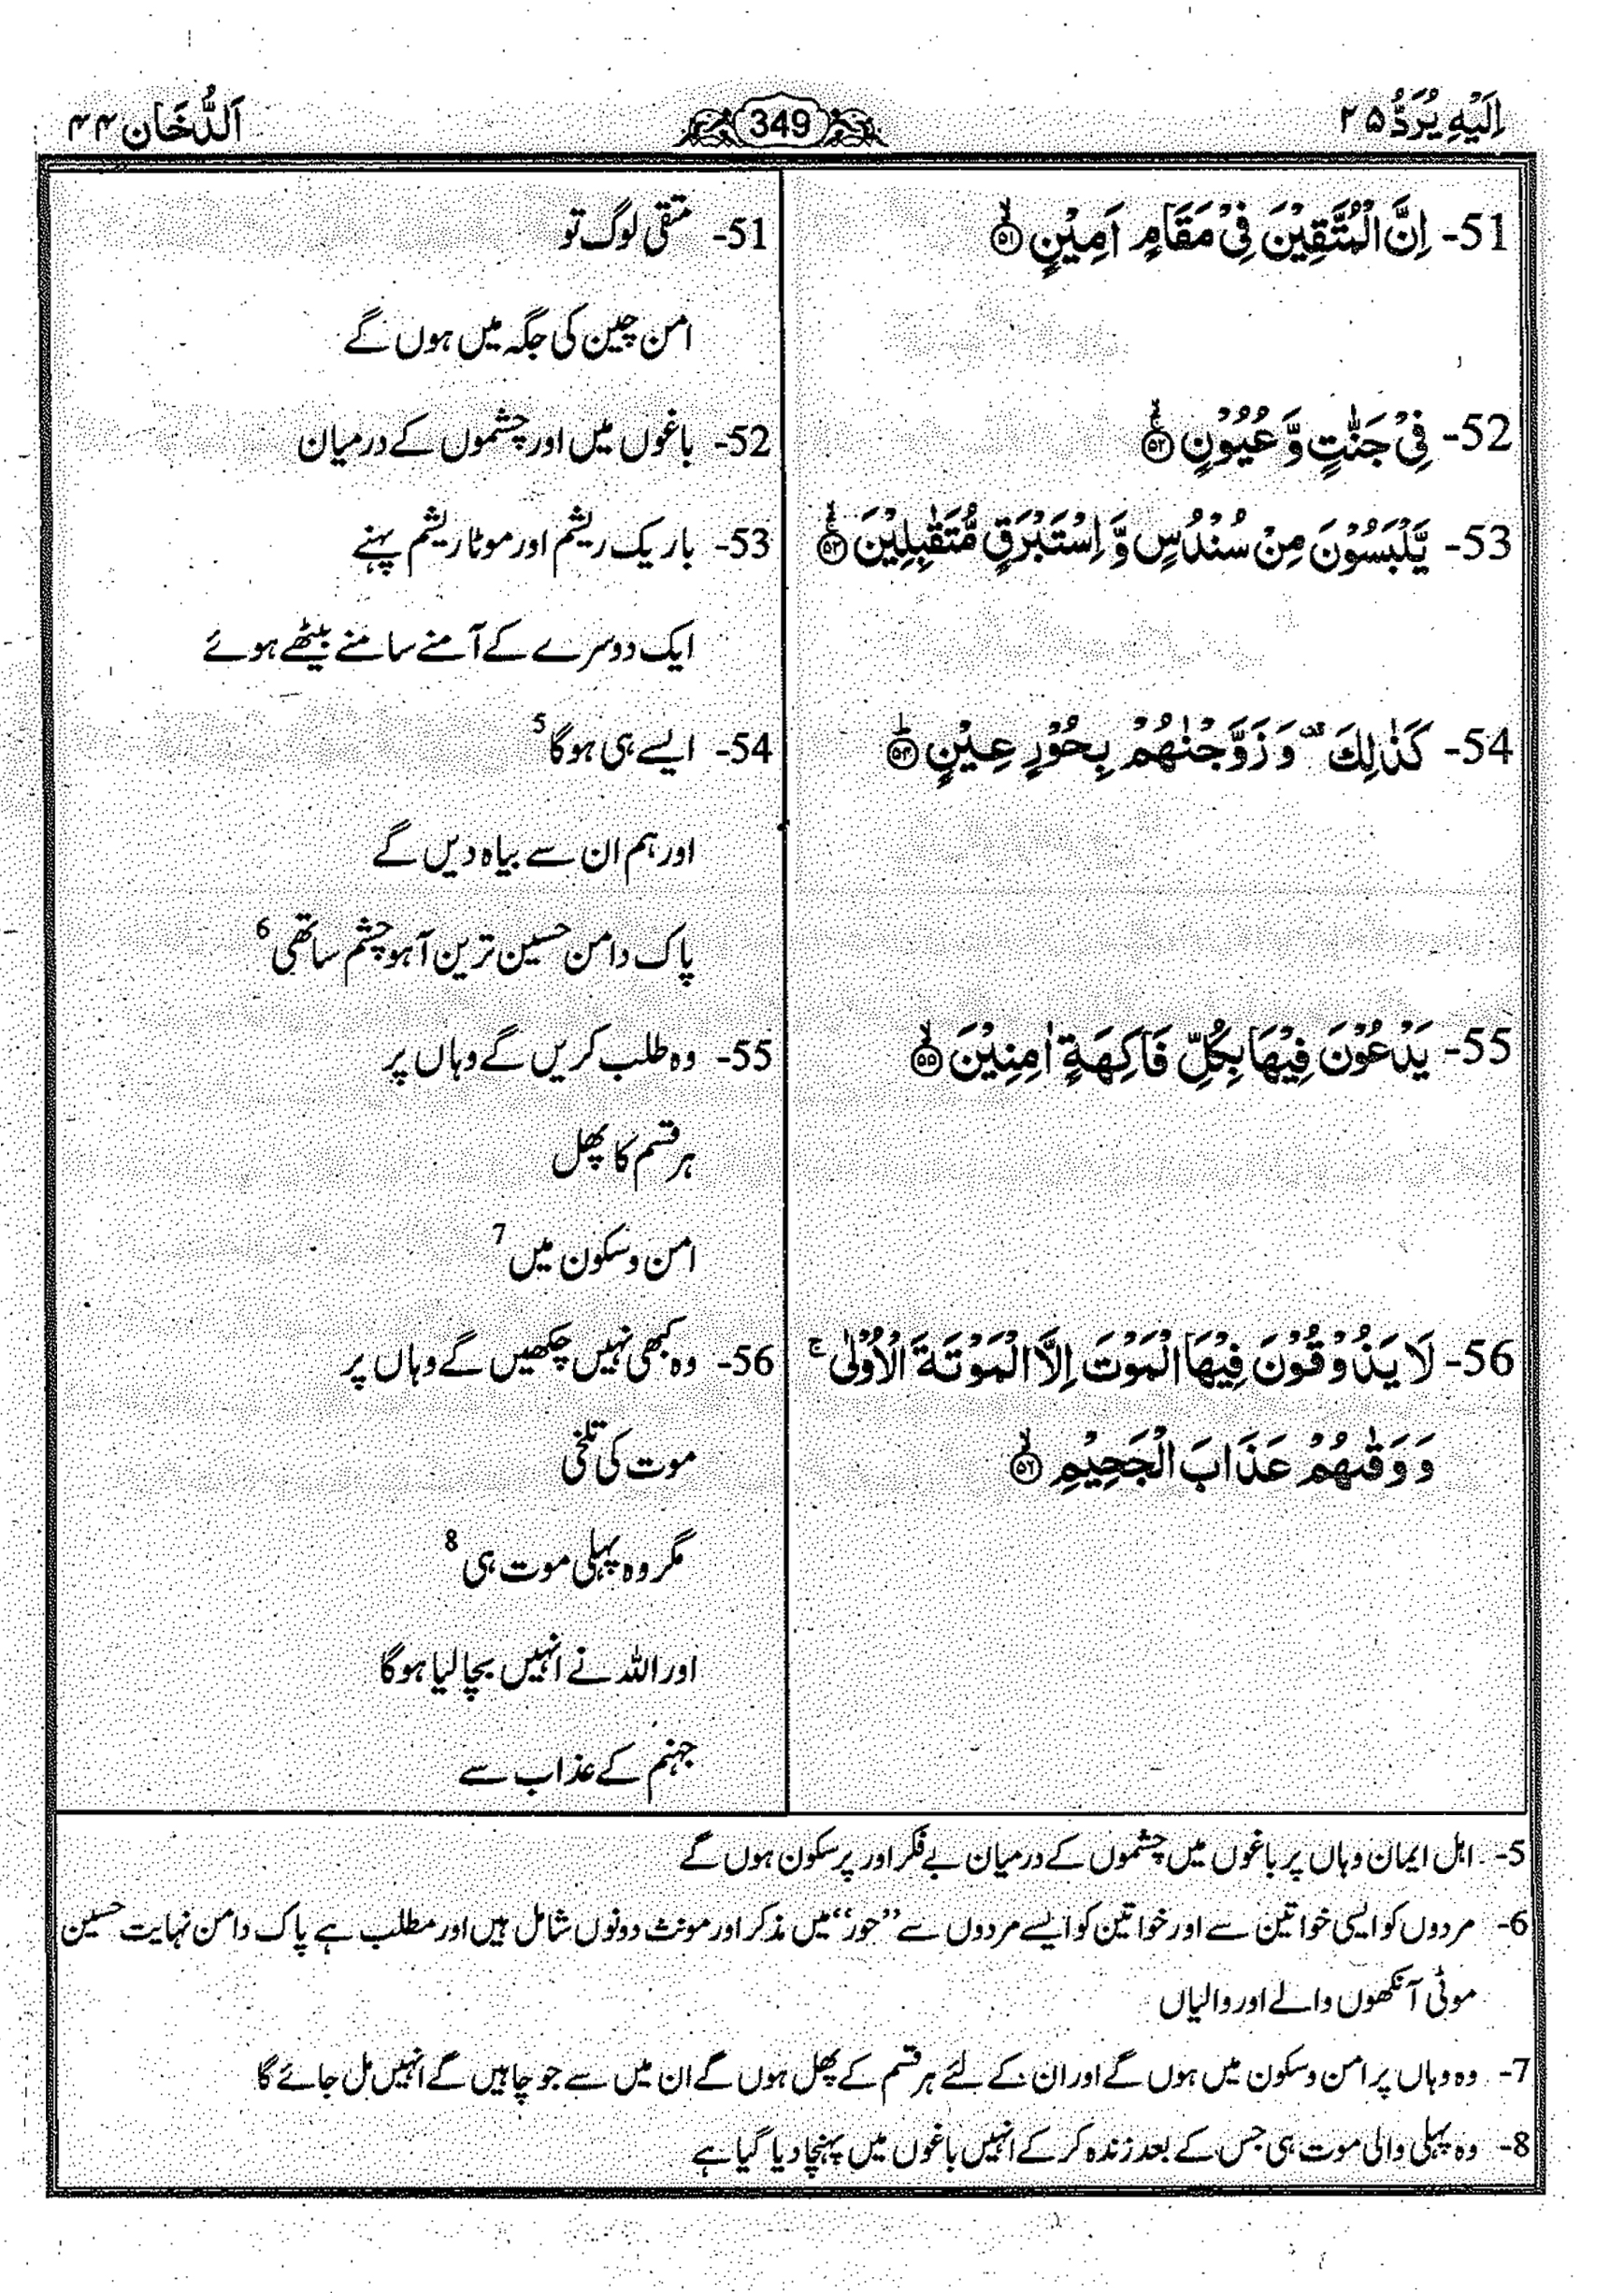 اِلَيْهِ يُرَدُّ ۲۵
349
اَلدُّخَان ۴۴
51- اِنَّ الْمُتَّقِيْنَ فِىْ مَقَامٍ اَمِيْنٍ ۙ﴿۵۱﴾
52- فِىْ جَنّٰتٍ وَّ عُيُوْنٍ ۚۙ﴿۵۲﴾
53- يَّلْبَسُوْنَ مِنْ سُنْدُسٍ وَّ اِسْتَبْرَقٍ مُّتَقٰبِلِيْنَ ۚۙ﴿۵۳﴾
54- كَذٰلِكَ ۟ وَ زَوَّجْنٰهُمْ بِحُوْرٍ عِيْنٍ ؕ﴿۵۴﴾
55- يَدْعُوْنَ فِيْهَا بِكُلِّ فَاكِهَةٍ اٰمِنِيْنَ ۙ﴿۵۵﴾
56- لَا يَذُوْقُوْنَ فِيْهَا الْمَوْتَ اِلَّا الْمَوْتَةَ الْاُوْلٰى ۚ
وَ وَقٰىهُمْ عَذَابَ الْجَحِيْمِ ۙ﴿۵۶﴾
51- متقی لوگ تو
امن چین کی جگہ میں ہوں گے
52- باغوں میں اور چشموں کے درمیان
53- باریک ریشم اور موٹا ریشم پہنے
ایک دوسرے کے آمنے سامنے بیٹھے ہوئے
54- ایسے ہی ہوگا 5
اور ہم ان سے بیاہ دیں گے
پاک دامن حسین ترین آہو چشم ساتھی 6
55- وہ طلب کریں گے وہاں پر
ہر قسم کا پھل
امن و سکون میں 7
56- وہ کبھی نہیں چکھیں گے وہاں پر
موت کی تلخی
مگر وہ پہلی موت ہی 8
اور اللہ نے انہیں بچا لیا ہوگا
جہنم کے عذاب سے
5- اہل ایمان وہاں پر باغوں میں چشموں کے درمیان بے فکر اور پر سکون ہوں گے
6- مردوں کو ایسی خواتین سے اور خواتین کو ایسے مردوں سے ”حور“ میں مذکر اور مونث دونوں شامل ہیں اور مطلب ہے پاک دامن نہایت حسین
موٹی آنکھوں والے اور والیاں
7- وہ وہاں پر امن و سکون میں ہوں گے اور ان کے لئے ہر قسم کے پھل ہوں گے ان میں سے جو چاہیں گے انہیں مل جائے گا
8- وہ پہلی والی موت ہی جس کے بعد زندہ کر کے انہیں باغوں میں پہنچا دیا گیا ہے